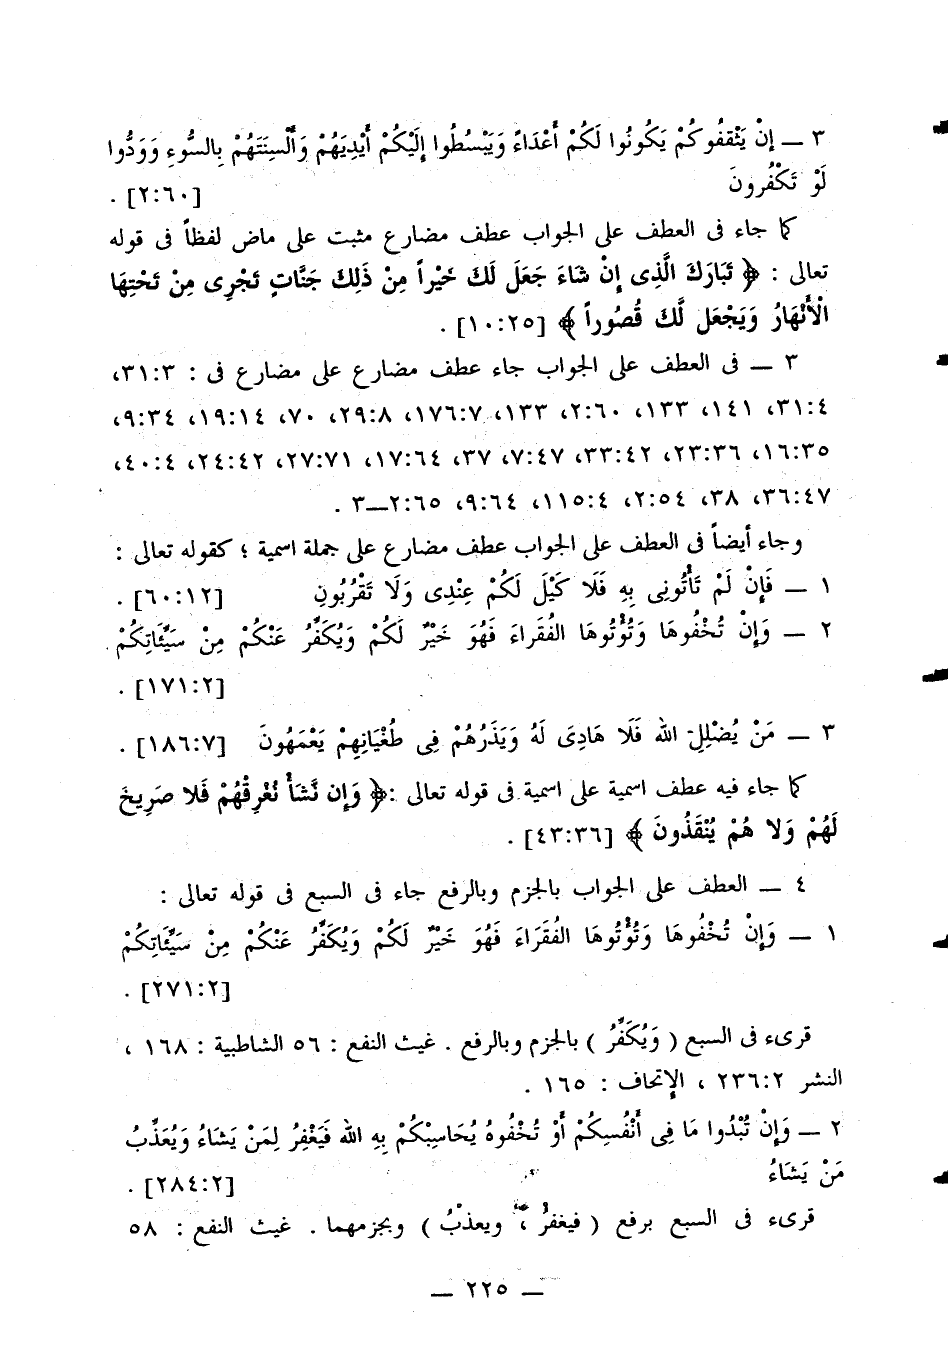 ٣ ــ إنْ يَثْقَفُوكُمْ يَكُونُوا لَكُمْ أَعْدَاءً وَيَبْسُطُوا إِلَيْكُمْ أَيْدِيَهُمْ وَأَلْسِنَتَهُمْ بِالسُّوءِ وَوَدُّوا
لَوْ تَكْفُرونَ [٢:٦٠] .
كما جاء فى العطف على الجواب عطف مضارع مثبت على ماض لفظاً فى قوله
تعالى : ﴿ تَبَارَكَ الَّذِى إِنْ شَاءَ جَعَلَ لَكَ خَيْراً مِنْ ذَلِكَ جَنَّاتٍ تَجْرِى مِنْ تَحْتِهَا
الْأَنْهَارُ وَيَجْعَل لَّكَ قُصُوراً ﴾ [١٠:٢٥] .
٣ ــ فى العطف على الجواب جاء عطف مضارع على مضارع فى : ٣١:٣،
٣١:٤، ١٤١، ١٣٣، ٢:٦٠، ١٣٣، ١٧٦:٧، ٢٩:٨، ٧٠، ١٩:١٤، ٩:٣٤،
١٦:٣٥، ٢٣:٣٦، ٣٣:٤٢، ٧:٤٧، ٣٧، ١٧:٦٤، ٢٧:٧١، ٢٤:٤٢، ٤٠:٤،
٣٦:٤٧، ٣٨، ٢:٥٤، ١١٥:٤، ٩:٦٤، ٢:٦٥ــ٣ .
وجاء أيضاً فى العطف على الجواب عطف مضارع على جملة اسمية ؛ كقوله تعالى :
١ ــ فَإِنْ لَمْ تَأْتُونِى بِهِ فَلَا كَيْلَ لَكُمْ عِنْدِى وَلَا تَقْرَبُونِ [٦٠:١٢] .
٢ ــ وَإِنْ تُخْفُوهَا وَتُؤْتُوهَا الفُقَراءَ فَهُوَ خَيْرٌ لَكُمْ وَيُكَفِّرُ عَنْكُمْ مِنْ سَيِّئَاتِكُمْ
[١٧١:٢] .
٣ ــ مَنْ يُضْلِلِ الله فَلَا هَادِىَ لَهُ وَيَذَرُهُمْ فِى طُغْيَانِهِمْ يَعْمَهُونَ [١٨٦:٧] .
كما جاء فيه عطف اسمية على اسمية فى قوله تعالى :﴿ وَإِن نَّشَأْ نُغْرِقْهُمْ فَلا صَرِيخَ
لَهُمْ وَلا هُمْ يُنْقَذُونَ ﴾ [٤٣:٣٦] .
٤ ــ العطف على الجواب بالجزم وبالرفع جاء فى السبع فى قوله تعالى :
١ ــ وَإِنْ تُخْفُوهَا وَتُؤْتُوهَا الفُقَرَاءَ فَهُوَ خَيْرٌ لَكُمْ وَيُكَفِّرُ عَنْكُمْ مِنْ سَيِّئَاتِكُمْ
[٢٧١:٢] .
قرىء فى السبع ( وَيُكَفِّرُ ) بالجزم وبالرفع . غيث النفع : ٥٦ الشاطبية : ١٦٨ ،
النشر ٢٣٦:٢ ، الإتحاف : ١٦٥ .
٢ ــ وَإِنْ تُبْدُوا مَا فِى أَنْفُسِكُمْ أَوْ تُخْفُوهُ يُحَاسِبْكُمْ بِهِ الله فَيَغْفِرُ لِمَنْ يَشَاءُ وَيُعَذِّبُ
مَنْ يَشَاءُ [٢٨٤:٢] .
قرىء فى السبع برفع ( فيغفرُ ، ويعذبُ ) وبجزمهما . غيث النفع : ٥٨
ــ ٢٢٥ ــ